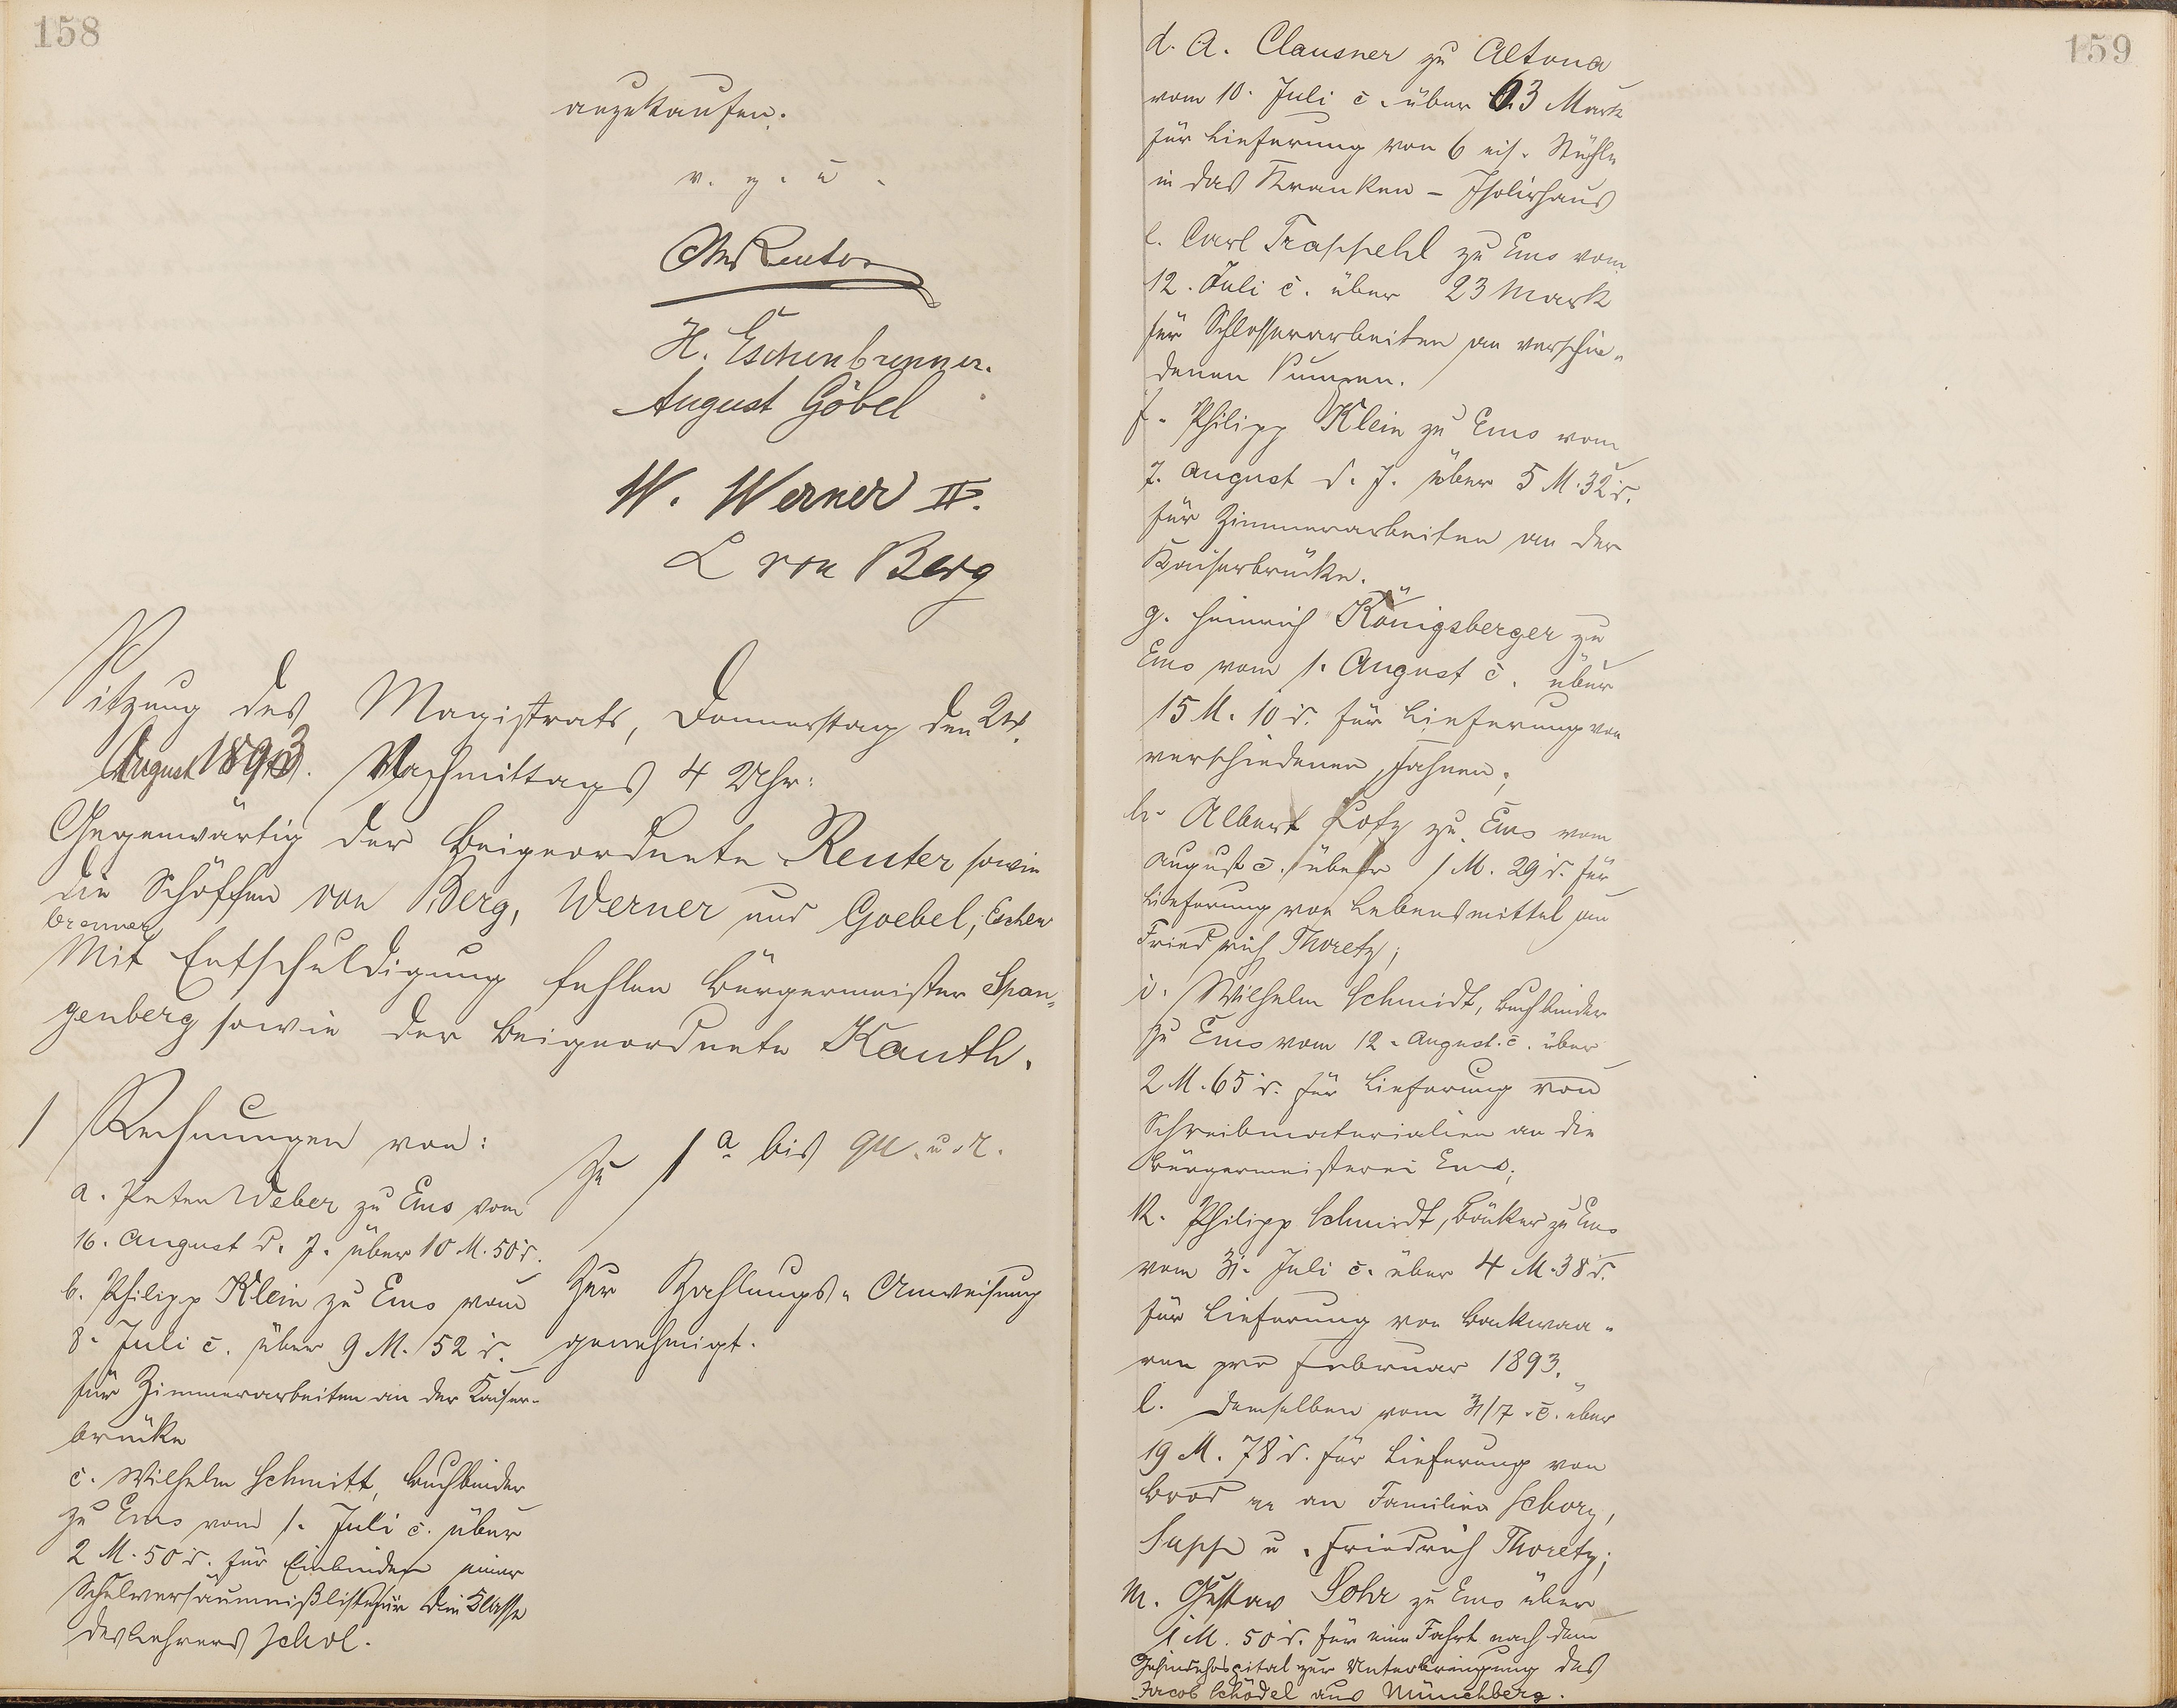 158
anzukaufen.
v. g. u.
Reuter
H. Eschenbrenner.
August Göbel
W. Werner II.
L von Berg
Sitzung des Magistrats, Donnerstag den 24.
August 1893. Nachmittags 4 Uhr:
Gegenwärtig der Beigeordnete Reuter sowie
die Schöffen von Berg, Werner und Goebel, Eschen
brenner
Mit Entschuldigung fehlen Bürgermeister Span-
genberg sowie der Beigeordnete Kauth.
1 Rechnungen von:
a. Peter Weber zu Ems vom
16. August d. J. über 10 M. 50 d.
b. Philipp Klein zu Ems vom
8. Juli c. über 9 M. 52 d.
für Zimmerarbeiten an der Kaiser-
brücke
c. Wilhelm Schmitt, Buchbinder
zu Ems vom 1. Juli c. über
2 M. 50 d. für Einbinden einer
Schulversäumnißliste für die Klasse
des Lehrers Schol.
Zu 1 a bis
Zur Zahlungs-Anweisung
genehmigt.
159
d. A. Clausner zu Altona
vom 10. Juli c. über 63 Mark
für Lieferung von 6 eis. Stühle
in das Kranken-Isolirhaus
e. Carl Trappehl zu Ems vom
12. Juli c. über 23 Mark
für Schlosserarbeiten an verschie-
denen Pumpen.
f. Philipp Klein zu Ems vom
7. August d. J. über 5 M. 32 d.
für Zimmerarbeiten an der
Kaiserbrücke.
g. Heinrich Königsberger zu
Ems vom 1. August c. über
15 M. 10 d. für Lieferung von
verschiedenen Fahnen;
h. Albert Lotz zu Ems vom
August c. über 1 M. 29 d. für
Lieferung von Lebensmittel an
Friedrich Thoretz;
i. Wilhelm Schmidt, Buchbinder
zu Ems vom 12. August c. über
2 M. 65 d. für Lieferung von
Schreibmaterialien an die
Bürgermeisterei Ems;
k. Philipp Schmidt, Bäcker zu Ems
vom 31. Juli c. über 4 M. 38 d.
für Lieferung von Backwaa-
ren pro Februar 1893.
l. demselben vom 31/7. c. über
19 M. 78 d. für Lieferung von
Brod an Familien Schorg,
Sapp u. Friedrich Thoretz;
m. Gustav Sohr zu Ems über
1 M. 50 d. für eine Fahrt nach dem
zur Unterbringung des
Jacob Schödel aus Münchberg.